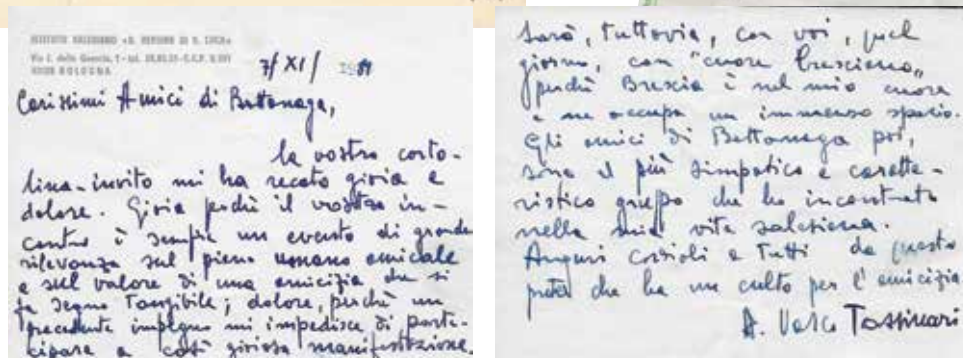 ISTITUTO SALESIANO «B. VERGINE DI S. LUCA»
BOLOGNA
7/XI/1981
Carissimi Amici di Bettonaga,
la vostra carto-
lina-invito mi ha recato gioia e
dolore. Gioia perchè il vostro in-
contro è sempre un evento di grande
rilevanza sul piano umano amicale
e sul valore di una amicizia che si
fa segno tangibile; dolore, perchè un
precedente impegno mi impedisce di parte-
cipare a così gioiosa manifestazione.
Sarò, tuttavia, con voi, quel
giorno, con "cuore bresciano"
perchè Brescia è nel mio cuore
e ne occupa un immenso spazio.
Gli amici di Bettonaga poi,
sono il più simpatico e caratte-
ristico gruppo che ho incontrato
nella mia vita salesiana.
Auguri cordiali a tutti da questo
prete che ha un culto per l'amicizia
D. Vasco Tassinari